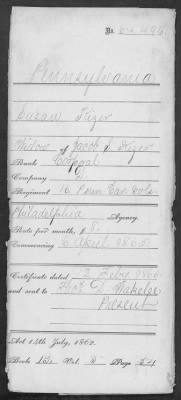 No. 64,496
Pennsylvania
Susan Kizer
Widow of Jacob S Kizer
Rank Corporal
Company
Regiment 16 Penn Cav Vols
Philadelphia Agency.
Rate per month, $ 8.
Commencing 6 April 1865
Certificate dated 12 Feby 1866
and sent to
Present
Act 14th July, 1862.
Book Vol. Page